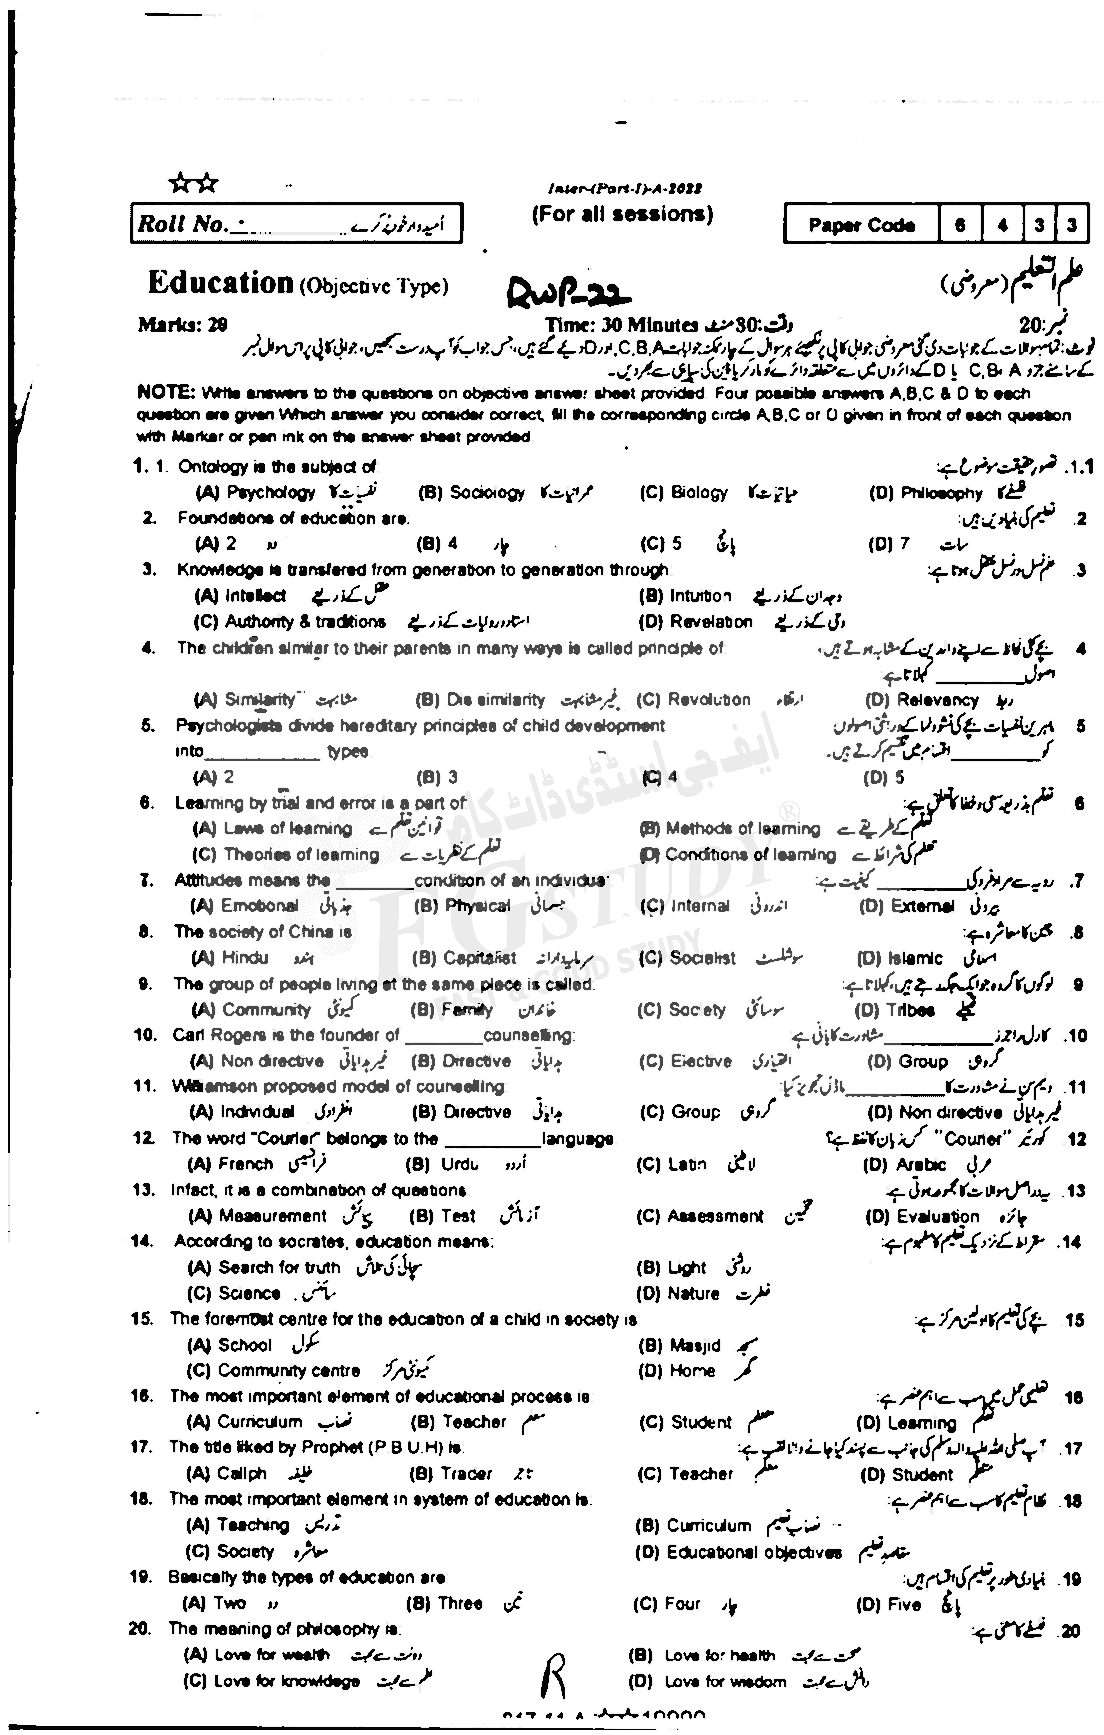 ☆☆
Inter-(Part-I)-A-2022
Roll No. اُمیدوار خود پُر کرے
(For all sessions)
Paper Code 6 4 3 3
Education (Objective Type) علم التعلیم (معروضی)
RWP-22
Marks: 20 Time: 30 Minutes وقت: 30 منٹ نمبر: 20
نوٹ: تمام سوالات کے جوابات دی گئی معروضی جوابی کاپی پر لکھیئے ہر سوال کے چار ممکنہ جوابات A,B,C اور D دیے گئے ہیں، جس جواب کو آپ درست سمجھیں، جوابی کاپی پر اس سوال نمبر
کے سامنے دیئے A ،B ،C یا D کے دائروں میں سے متعلقہ دائرے کو مارکر یا پین کی سیاہی سے بھر دیں۔
NOTE: Write answers to the questions on objective answer sheet provided. Four possible answers A,B,C & D to each
question are given Which answer you consider correct, fill the corresponding circle A,B,C or D given in front of each question
with Marker or pen ink on the answer sheet provided
1. 1. Ontology is the subject of: 1.1. تصور حقیقت موضوع ہے:
(A) Psychology نفسیات کا (B) Sociology عمرانیات کا (C) Biology حیاتیات کا (D) Philosophy فلسفے کا
2. Foundations of education are: 2. تعلیم کی بنیادیں ہیں:
(A) 2 دو (B) 4 چار (C) 5 پانچ (D) 7 سات
3. Knowledge is transfered from generation to generation through: 3. علم نسل در نسل منتقل ہوتا ہے:
(A) Intellect عقل کے ذریعے (B) Intuition وجدان کے ذریعے
(C) Authority & traditions اسناد و روایات کے ذریعے (D) Revelation وحی کے ذریعے
4. The children similar to their parents in many ways is called principle of: 4 بچے کئی لحاظ سے اپنے والدین کے مشابہ ہوتے ہیں،
اصول ________ کہلاتا ہے
(A) Similarity مشابہت (B) Dis similarity غیر مشابہت (C) Revolution ارتقاء (D) Relevancy ربط
5. Psychologists divide hereditary principles of child development 5 ماہرین نفسیات بچے کی نشوونما کے وراثتی اصولوں
into ________ types کو ________ اقسام میں تقسیم کرتے ہیں۔
(A) 2 (B) 3 (C) 4 (D) 5
6. Learning by trial and error is a part of: 6 تعلم بذریعہ سعی و خطا کا تعلق ہے:
(A) Laws of learning قوانین تعلم سے (B) Methods of learning تعلم کے طریقے سے
(C) Theories of learning تعلم کے نظریات سے (D) Conditions of learning تعلم کی شرائط سے
7. Attitudes means the ________ condition of an individual: 7. رویہ سے مراد فرد کی ________ کیفیت ہے:
(A) Emotional جذباتی (B) Physical جسمانی (C) Internal اندرونی (D) External بیرونی
8. The society of China is 8. چین کا معاشرہ ہے:
(A) Hindu ہندو (B) Capitalist سرمایہ دارانہ (C) Socialist سوشلسٹ (D) Islamic اسلامی
9. The group of people living at the same place is called: 9 لوگوں کا گروہ جو ایک جگہ رہتے ہیں، کہلاتا ہے:
(A) Community کمیونٹی (B) Family خاندان (C) Society سوسائٹی (D) Tribes قبیلے
10. Carl Rogers is the founder of ________ counselling: 10. کارل راجرز ________ مشاورت کا بانی ہے
(A) Non directive غیر ہدایاتی (B) Directive ہدایاتی (C) Elective اختیاری (D) Group گروہی
11. Williamson proposed model of counselling: 11. ولیم سن نے مشاورت کا ________ ماڈل تجویز کیا:
(A) Individual انفرادی (B) Directive ہدایاتی (C) Group گروہی (D) Non directive غیر ہدایاتی
12. The word "Courier" belongs to the ________ language 12 کورئیر "Courier" کس زبان کا لفظ ہے؟
(A) French فرانسیسی (B) Urdu اُردو (C) Latin لاطینی (D) Arabic عربی
13. Infact, it is a combination of questions 13. یہ دراصل سوالات کا مجموعہ ہوتی ہے:
(A) Measurement پیمائش (B) Test آزمائش (C) Assessment تخمین (D) Evaluation جائزہ
14. According to socrates, education means: 14. سقراط کے نزدیک تعلیم کا مفہوم ہے:
(A) Search for truth سچائی کی تلاش (B) Light روشنی
(C) Science سائنس (D) Nature فطرت
15. The foremost centre for the education of a child in society is 15 بچے کی تعلیم کا اولین مرکز ہے:
(A) School سکول (B) Masjid مسجد
(C) Community centre کمیونٹی مرکز (D) Home گھر
16. The most important element of educational process is: 16 تعلیمی عمل میں سب سے اہم عنصر ہے:
(A) Curriculum نصاب (B) Teacher معلم (C) Student متعلم (D) Learning تعلم
17. The title liked by Prophet (P B U.H) is: 17. آپ صلی اللہ علیہ وآلہ وسلم کی جانب سے پسند کیا جانے والا لقب ہے:
(A) Caliph خلیفہ (B) Tracer تاجر (C) Teacher معلم (D) Student متعلم
18. The most important element in system of education is: 18. نظام تعلیم کا سب سے اہم عنصر ہے:
(A) Teaching تدریس (B) Curriculum نصاب تعلیم
(C) Society معاشرہ (D) Educational objectives مقاصد تعلیم
19. Basically the types of education are 19. بنیادی طور پر تعلیم کی اقسام ہیں:
(A) Two دو (B) Three تین (C) Four چار (D) Five پانچ
20. The meaning of philosophy is: 20 فلسفے کا معنی ہے:
(A) Love for wealth دولت سے محبت (B) Love for health صحت سے محبت
(C) Love for knowldege علم سے محبت (D) Love for wisdom دانش سے محبت
R
ایف جی اسٹڈی ڈاٹ کام
FG STUDY ®
FAST & GOOD STUDY